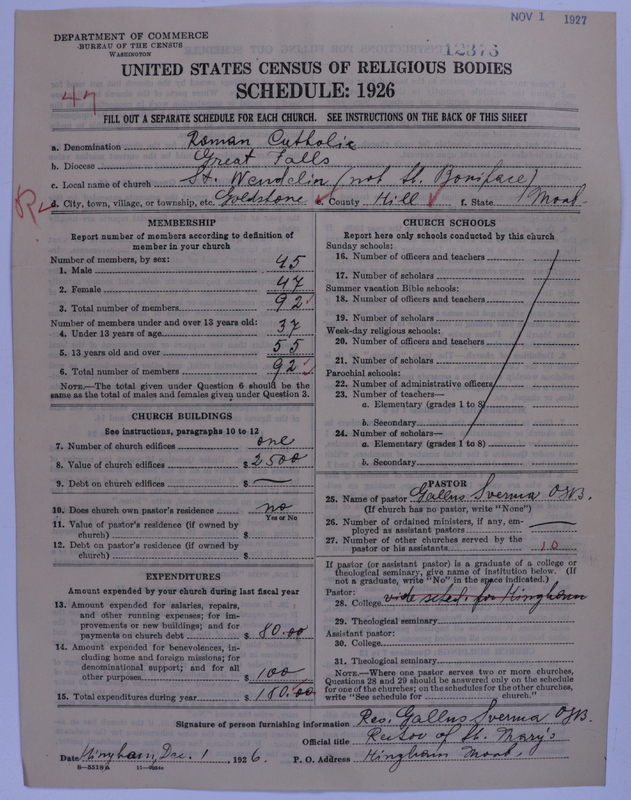 NOV 1 1927
DEPARTMENT OF COMMERCE
BUREAU OF THE CENSUS
WASHINGTON
12376
UNITED STATES CENSUS OF RELIGIOUS BODIES
47
SCHEDULE: 1926
FILL OUT A SEPARATE SCHEDULE FOR EACH CHURCH. SEE INSTRUCTIONS ON THE BACK OF THIS SHEET
a. Denomination Roman Catholic
b. Diocese Great Falls
c. Local name of church St. Wendelin (not St. Boniface)
d. City, town, village, or township, etc. Goldstone e. County Hill f. State Mont.
MEMBERSHIP
Report number of members according to definition of
member in your church
Number of members, by sex:
1. Male 45
2. Female 47
3. Total number of members 92
Number of members under and over 13 years old:
4. Under 13 years of age 37
5. 13 years old and over 55
6. Total number of members 92
NOTE.—The total given under Question 6 should be the
same as the total of males and females given under Question 3.
CHURCH BUILDINGS
See instructions, paragraphs 10 to 12
7. Number of church edifices one
8. Value of church edifices $ 2500
9. Debt on church edifices $ —
10. Does church own pastor's residence no
Yes or No
11. Value of pastor's residence (if owned by
church) $
12. Debt on pastor's residence (if owned by
church) $
EXPENDITURES
Amount expended by your church during last fiscal year
13. Amount expended for salaries, repairs,
and other running expenses; for im-
provements or new buildings; and for
payments on church debt $ 80.00
14. Amount expended for benevolences, in-
cluding home and foreign missions; for
denominational support; and for all
other purposes $ 100
15. Total expenditures during year $ 180.00
CHURCH SCHOOLS
Report here only schools conducted by this church
Sunday schools:
16. Number of officers and teachers
17. Number of scholars
Summer vacation Bible schools:
18. Number of officers and teachers
19. Number of scholars
Week-day religious schools:
20. Number of officers and teachers
21. Number of scholars
Parochial schools:
22. Number of administrative officers
23. Number of teachers—
a. Elementary (grades 1 to 8)
b. Secondary
24. Number of scholars—
a. Elementary (grades 1 to 8)
b. Secondary
PASTOR
25. Name of pastor Gallus Sverma OSB.
(If church has no pastor, write "None")
26. Number of ordained ministers, if any, em-
ployed as assistant pastors —
27. Number of other churches served by the
pastor or his assistants 10
If pastor (or assistant pastor) is a graduate of a college or
theological seminary, give name of institution below. (If
not a graduate, write "No" in the space indicated.)
Pastor:
28. College vide sched. for Hingham
29. Theological seminary
Assistant pastor:
30. College
31. Theological seminary
NOTE.—Where one pastor serves two or more churches,
Questions 28 and 29 should be answered only on the schedule
for one of the churches; on the schedules for the other churches,
write "See schedule for church."
Signature of person furnishing information Rev. Gallus Sverma OSB.
Official title Rector of St. Mary's
Date Hingham, Dec. 1, 1926. P. O. Address Hingham Mont.